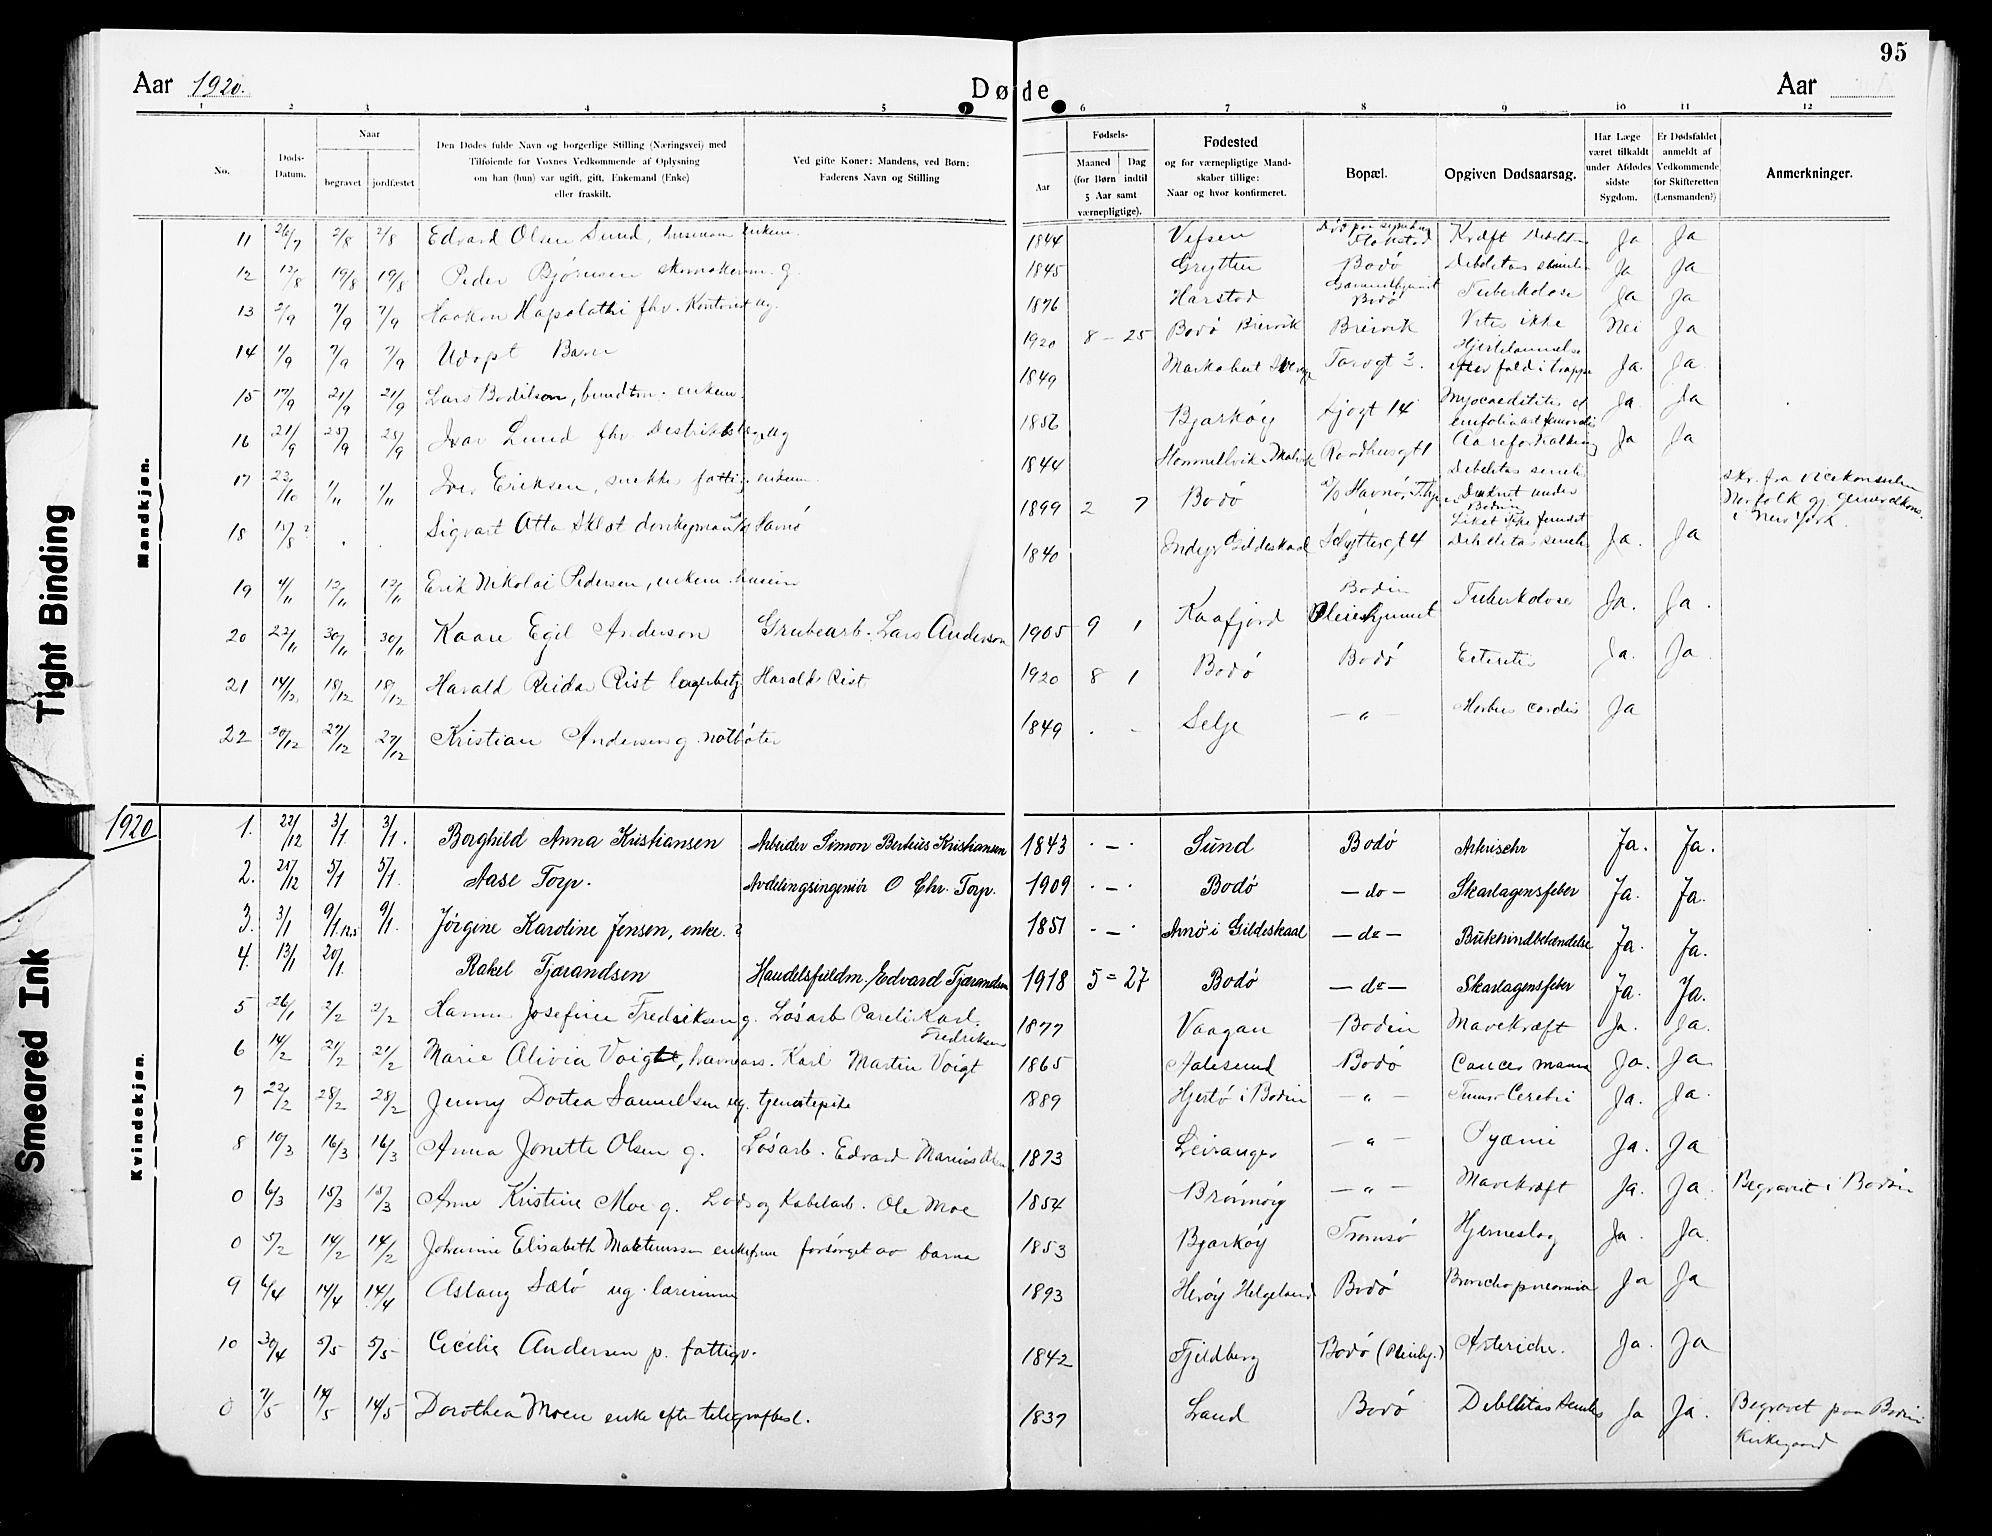 95
Aar 1920.
Døde
Aar
1 2 3 4 5 6 7 8 9 10 11 12
No.
Døds-Datum.
Naar
begravet
jordfæstet
Den Dødes fulde Navn og borgerlige Stilling (Næringsvei) med
Tilføiende for Voxnes Vedkommende af Oplysning
om han (hun) var ugift, gift, Enkemand (Enke)
eller fraskilt.
Ved gifte Koner: Mandens, ved Børn:
Faderens Navn og Stilling
Fødsels-
Aar
Maaned Dag
(for Børn indtil
5 Aar samt
værnepligtige).
Fødested
og for værnepligtige Mand-
skaber tillige:
Naar og hvor konfirmeret.
Bopæl.
Opgiven Dødsaarsag.
Har Læge
været tilkaldt
under Afdødes
sidste
Sygdom.
Er Dødsfaldet
anmeldt af
Vedkommende
for Skifteretten
(Lensmanden?)
Anmerkninger.
Mandkjøn.
11 26/7 2/8 2/8 Edvard Olsen Sund, husmann enkem. 1844 Vefsen Kræft Debilitas Ja Ja
12 12/8 19/8 19/8 Peder Bjørnsen skomakerm. g. 1845 Grytten Bodø Debilitas senilis Ja Ja
13 2/9 7/9 7/9 Haakon fhv. Kontorist ug. 1876 Harstad Gammelhjemmet Bodø Tuberkulose Ja Ja
14 1/9 7/9 7/9 Udøpt Barn 1920 8 - 25 Bodø Breivik Breivik Vites ikke Nei Ja
15 17/9 21/9 21/9 Lars Bodilson, bundtm. enkem. 1849 Torvgt 3. Hjertelammelse efter fald i trappe Ja. Ja.
16 21/9 25/9 25/9 Ivar Lund fhv Distriktslæge ug 1856 Bjarkøy Sjøgt 14 Ja. Ja
17 22/10 1/11 1/11 Iver Eriksen, snekker fattig. enkem. 1844 Hommelvik Raadhusgt 1 Aareforkalkning Debilitas senilis Ja Ja
18 15/8? . . Sigvart Otto donkeyman Havnø 1899 2 7 Bodø Druknet under Liket ikke fundet
skr. fra Vicekonsulen
Norfolk gj. Generalkons.
i New York.
19 4/11 12/11 12/11 Erik Nikolai Pedersen, enkem. 1840 Gildeskaal Debilitas senilis Ja. Ja
20 22/11 30/11 30/11 Kaare Egil Anderson Grubearb. Lars Anderson 1905 9 1 Kaafjord Bodin Pleiehjemmet Tuberkulose Ja. Ja.
21 14/12 18/12 18/12 Harald Reidar Rist lagerbetj Harald Rist 1920 8 1 Bodø Bodø Ja. Ja.
22 20/12 27/12 27/12 Kristian Andersen g. notbøter 1849 . - Selje — " — Morbus cordis Ja
1920
Kvindekjøn.
1. 22/12 3/1 3/1. Borghild Anna Kristiansen Arbeider Simon Bertius Kristiansen 1843 . - . Sund Bodø Ja. Ja.
2. 25/12 5/1 5/1. Aase Torp. Avdelingsingeniør O Chr. Torp. 1909 . - . Bodø — do — Skarlagensfeber Ja. Ja.
3. 3/1 9/1 9/1. Jørgine Karoline Jensen, enke. 1851 . - . Arnø i Gildeskaal — do — Bukhindbetændelse Ja. Ja.
4. 13/1 20/1. Rakel Tjærandsen Handelsfuldm. Edvard Tjærandsen 1918 5 = 27 Bodø — do — Skarlagensfeber Ja. Ja.
5 26/1 2/2 2/2 Hanna Josefine Fredriksen g. Løsarb Pareli Karl. Fredriksen 1877 Vaagan Bodin Mavekræft Ja. Ja.
6 14/2 21/2 21/2 Marie Olivia Voigt, havnearb. Karl Martin Voigt 1865 Aalesund Bodø Cancer mama Ja. Ja
7 22/2 28/2 28/2 Jenny Dortea Samuelsen ug. tjenestepike 1889 Hjertø i Bodin — " — Tumor Cerebri Ja. Ja.
8 10/3 16/3 16/3 Anna Jonette Olsen g. Løsarb. Edvard Marius Olsen 1873 Leiranger — " — Pyæmi Ja. Ja
0 6/3 15/3 15/3 Anne Kristine Moe g. Lods og Kabelarb. Ole Moe 1854 Brønnøy — " — Mavekræft Ja. Ja. Begravet i Bodin
0 5/2 14/2 14/2 Johanne Elisabeth enkefrue forsørget av barna 1853 Bjarkøy Tromsø Hjerneslag Ja. Ja.
9 6/4 14/4 14/4 Aslaug Sætø ug. lærerinne 1893 Herøy Helgeland Bodø Bronchopneumonia Ja Ja
10 30/4 5/5 5/5 Cecilie Andersen p. fattigv. 1842 Fjeldberg Bodø (Pleiehj.) Ja. Ja
0 7/5 14/5 14/5 Dorothea Moen enke efter telegrafbest. 1837 Land Bodø Debilitas Senilis Ja Ja. Begravet paa Bodin
Kirkegaard
Tight Binding
Smeared Ink